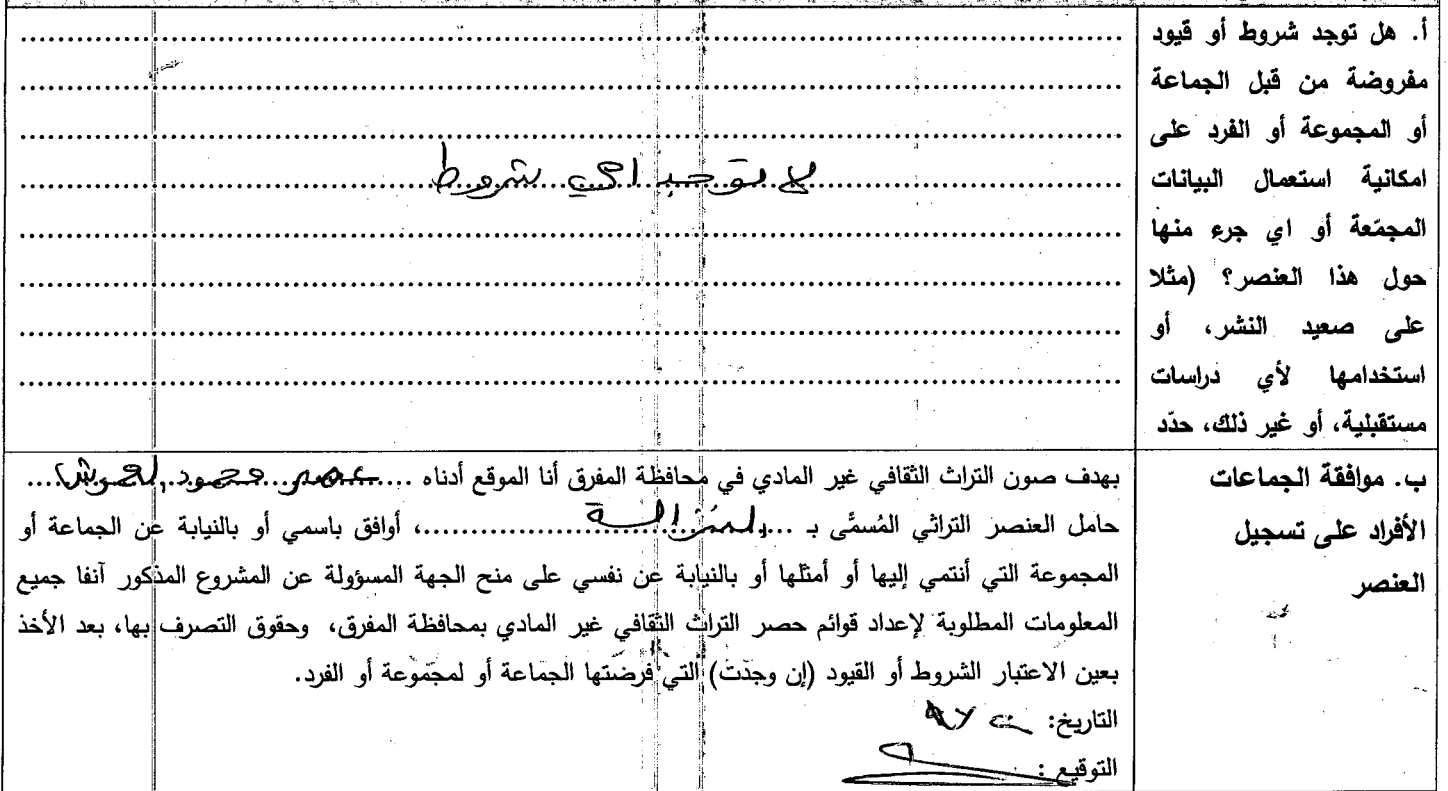 أ. هل توجد شروط أو قيود
مفروضة من قبل الجماعة
أو المجموعة أو الفرد على
امكانية استعمال البيانات
المجمّعة أو اي جرء منها
حول هذا العنصر؟ (مثلا
على صعيد النشر، أو
استخدامها لأي دراسات
مستقبلية، أو غير ذلك، حدّد
لا يوجد اي شروط
ب. موافقة الجماعات
الأفراد على تسجيل
العنصر
بهدف صون التراث الثقافي غير المادي في محافظة المفرق أنا الموقع أدناه .... محمود ....
حامل العنصر التراثي المُسمَّى بـ ....................، أوافق باسمي أو بالنيابة عن الجماعة أو
المجموعة التي أنتمي إليها أو أمثلها أو بالنيابة عن نفسي على منح الجهة المسؤولة عن المشروع المذكور آنفا جميع
المعلومات المطلوبة لإعداد قوائم حصر التراث الثقافي غير المادي بمحافظة المفرق، وحقوق التصرف بها، بعد الأخذ
بعين الاعتبار الشروط أو القيود (إن وجدت) التي فرضتها الجماعة أو لمجموعة أو الفرد.
التاريخ:
التوقيع: